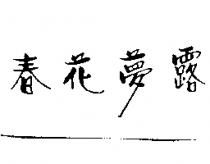 春花夢露